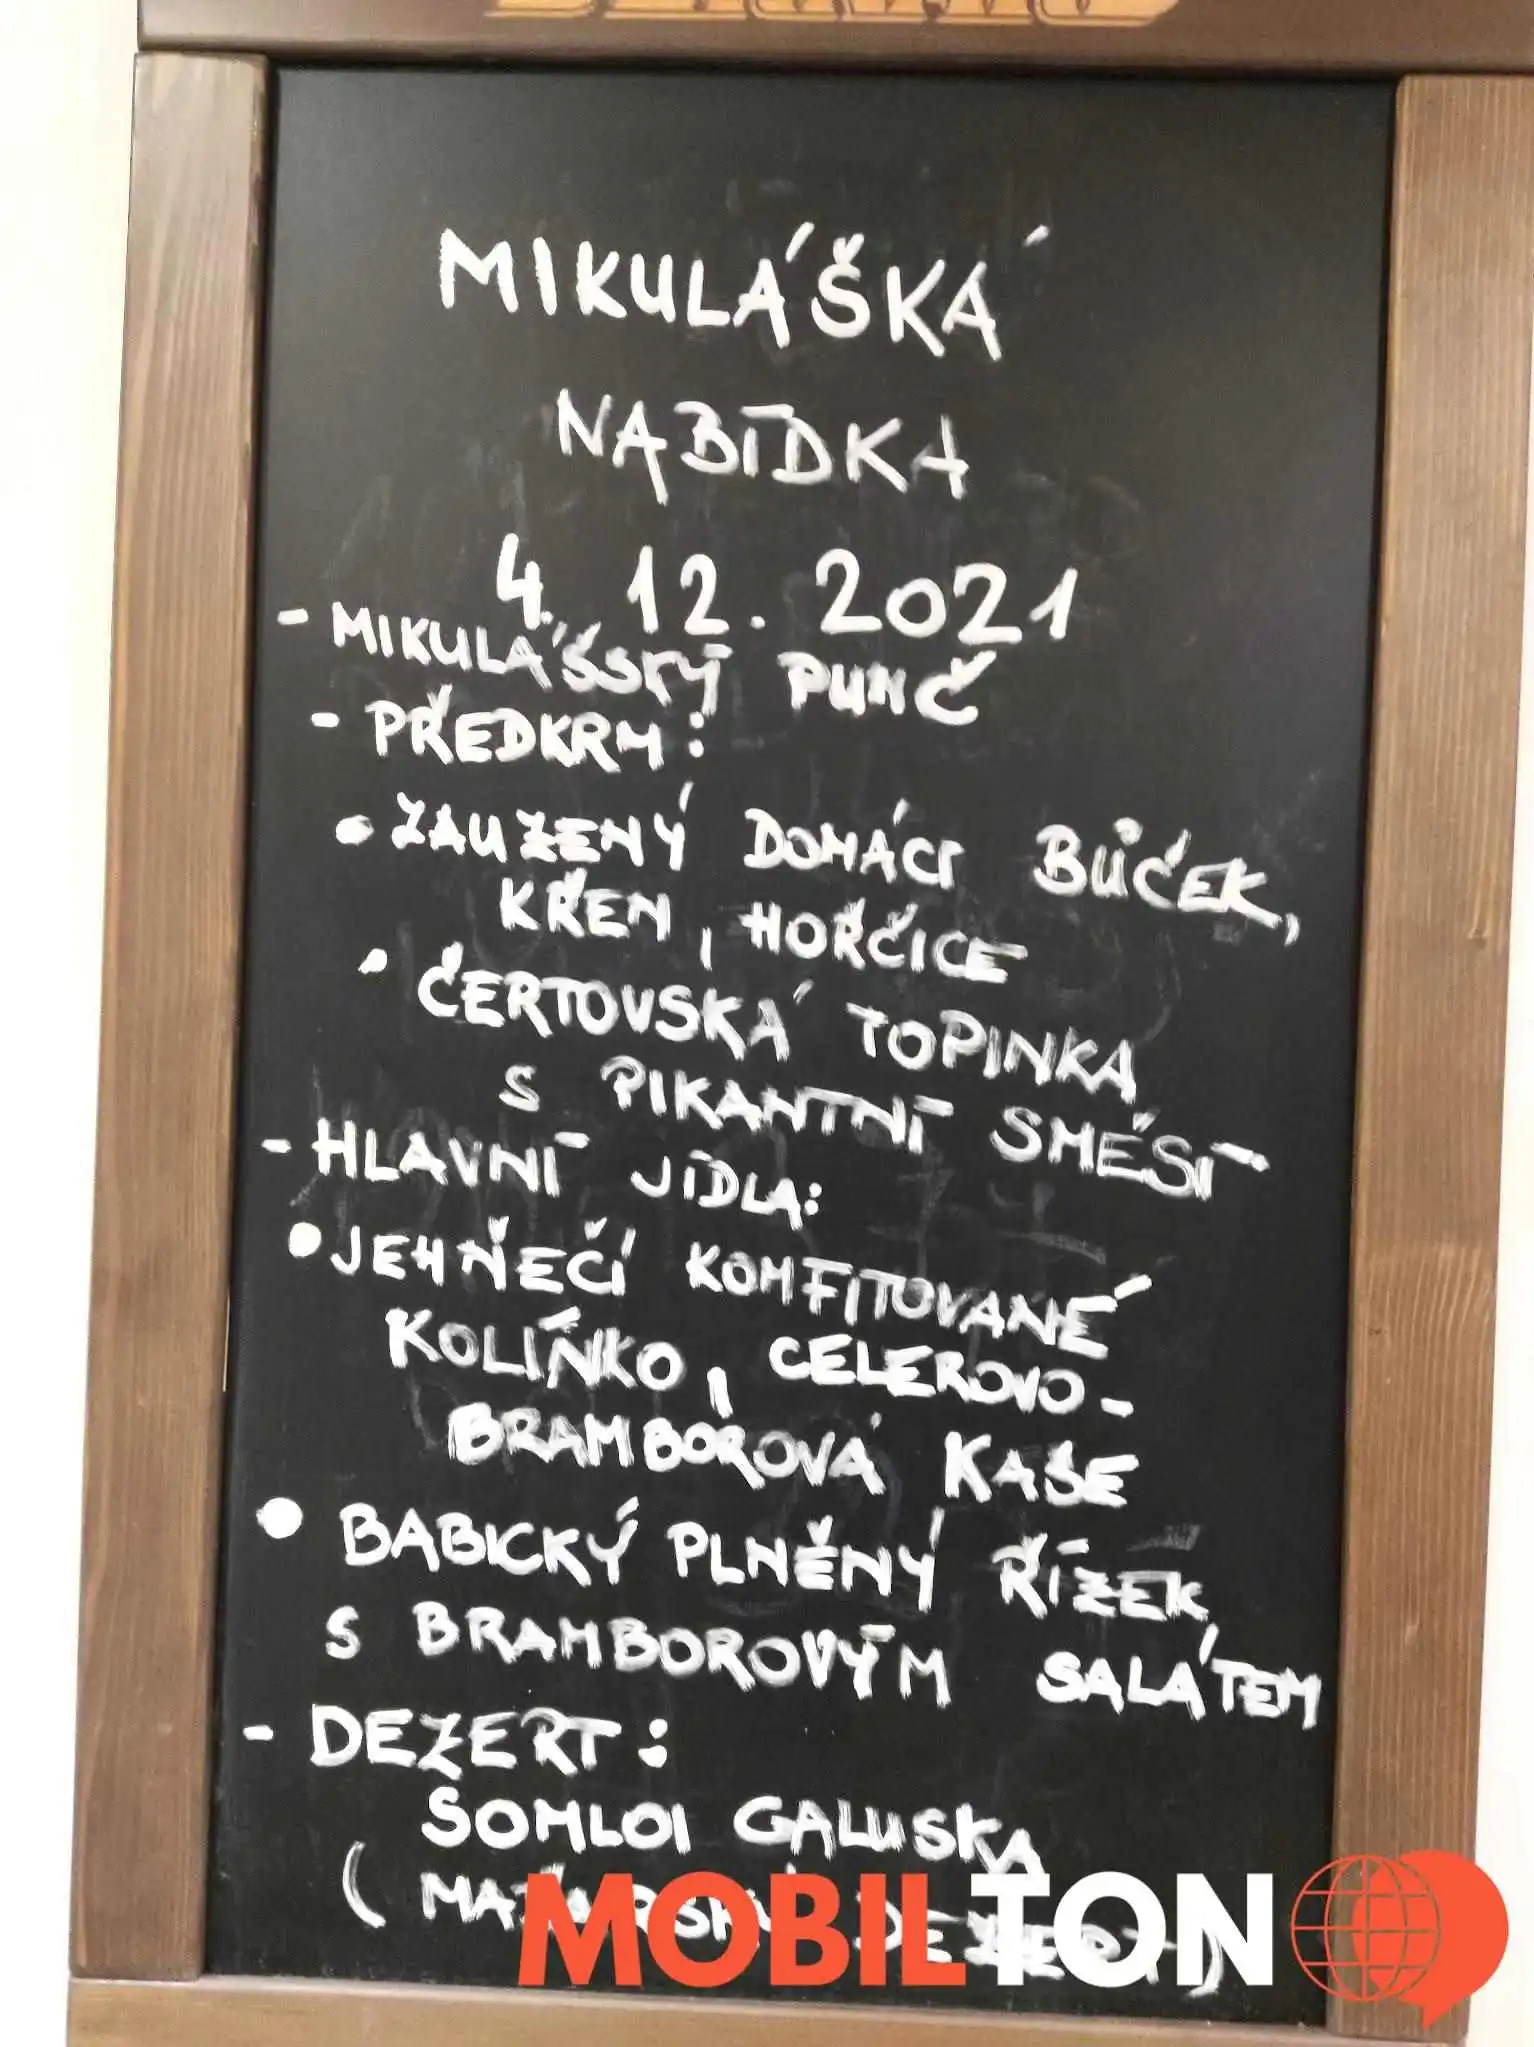 MIKULÁŠKÁ
NABÍDKA
4. 12. 2021
- MIKULÁŠSKÝ PUNČ
- PŘEDKRM:
• ZAUZENÝ DOMÁCÍ BŮČEK,
KŘEN, HOŘČICE
• ČERTOVSKÁ TOPINKA
S PIKANTNÍ SMĚSÍ
- HLAVNÍ JÍDLA:
• JEHŇEČÍ KOMFITOVANÉ
KOLÍŇKO, CELEROVO-
BRAMBOROVÁ KAŠE
• BABICKÝ PLNĚNÝ ŘÍZEK
S BRAMBOROVÝM SALÁTEM
- DEZERT:
SOMLOI GALUSKA
(MAĎARSKÝ DEZERT)
MOBILTON